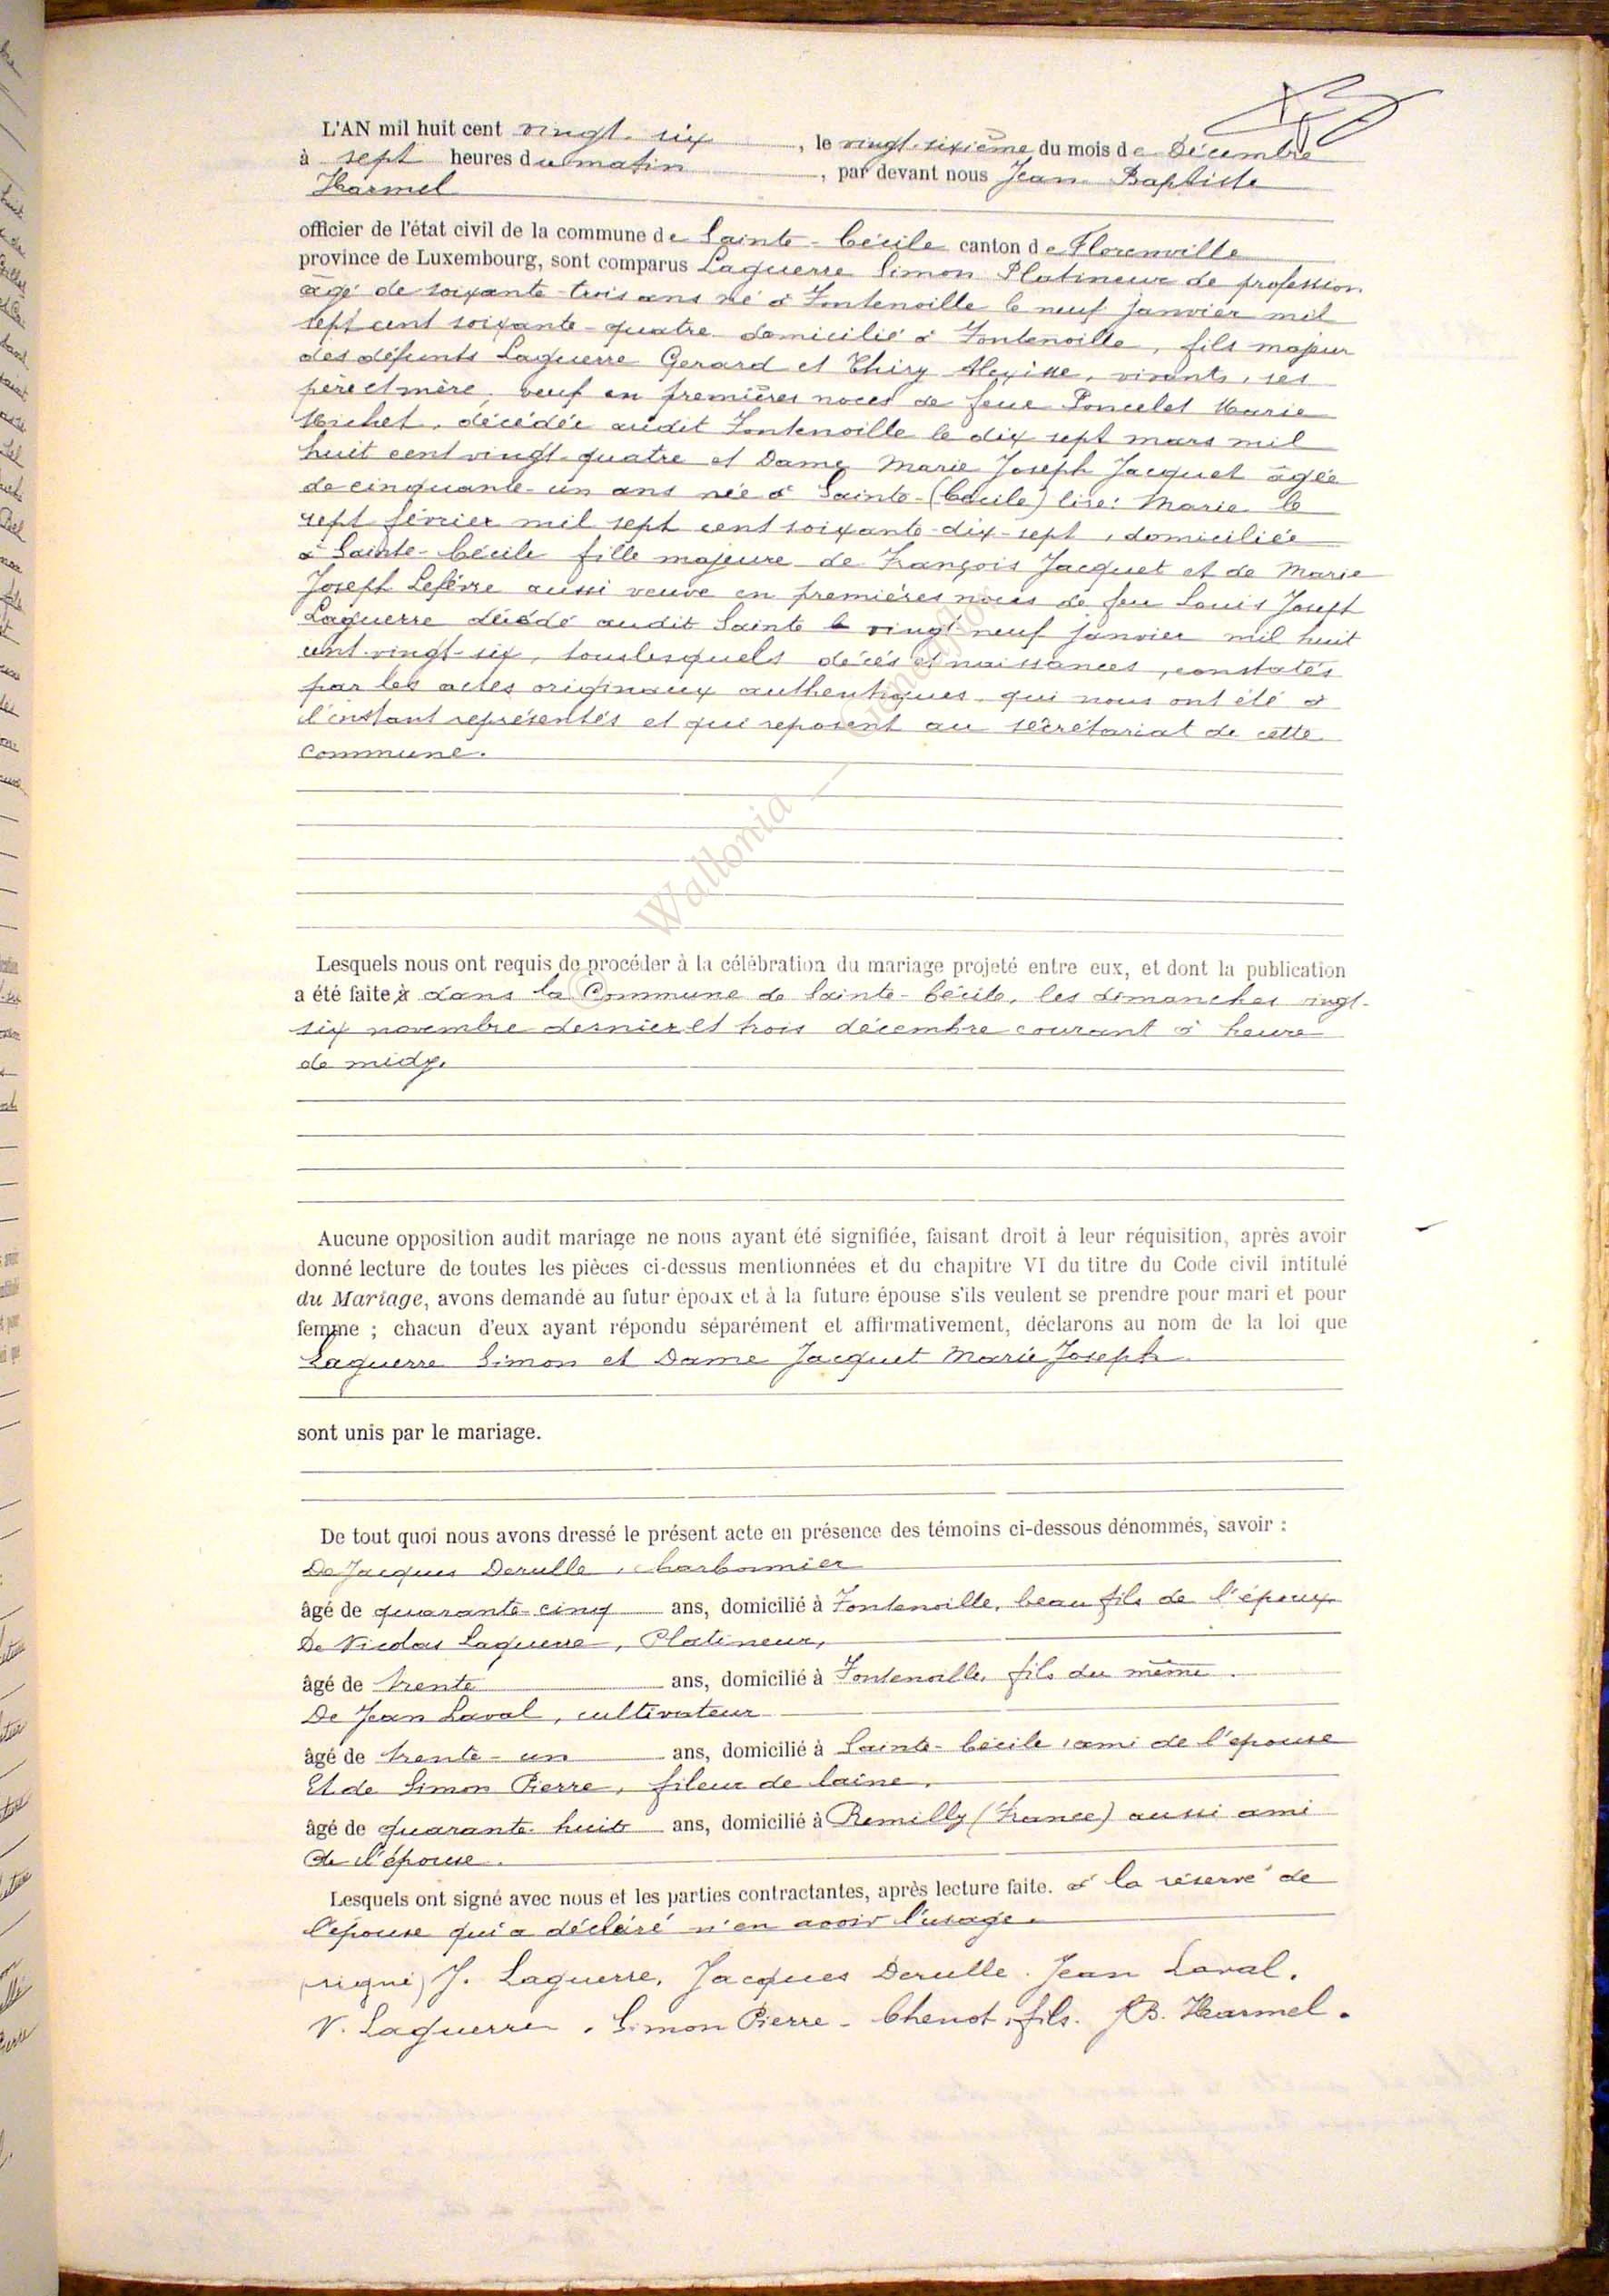 L'AN mil huit cent vingt-six, le vingt-sixième du mois de Décembre
à sept heures du matin, par devant nous Jean Baptiste
Harmel
officier de l'état civil de la commune de Sainte-Cécile canton de Florenville
province de Luxembourg, sont comparus Laguerre Simon Platineur de profession
âgé de soixante-trois ans né à Fontenoille le neuf janvier mil
sept cent soixante-quatre domicilié à Fontenoille, fils majeur
des défunts Laguerre Gerard et Thiry Alexisse, vivants, ses
père et mère, veuf en premières noces de feue Poncelet Marie
Michel, décédée audit Fontenoille le dix sept mars mil
huit cent vingt-quatre et Dame Marie Joseph Jacquet âgée
de cinquante-un ans née à Sainte-(Cécile) lire: Marie le
sept février mil sept cent soixante-dix-sept, domiciliée
à Sainte-Cécile fille majeure de François Jacquet et de Marie
Joseph Lefèvre aussi veuve en premières noces de feu Louis Joseph
Laguerre décédé audit Sainte le vingt neuf janvier mil huit
cent vingt-six, tous lesquels décès et naissances, constatés
par les actes originaux authentiques qui nous ont été à
l'instant représentés et qui reposent au secrétariat de cette
commune.
© Wallonia — Geneaflo
Lesquels nous ont requis de procéder à la célébration du mariage projeté entre eux, et dont la publication
a été faite à dans la Commune de Sainte-Cécile, les dimanches vingt-
six novembre dernier et trois décembre courant à heure
de midy.
Aucune opposition audit mariage ne nous ayant été signifiée, faisant droit à leur réquisition, après avoir
donné lecture de toutes les pièces ci-dessus mentionnées et du chapitre VI du titre du Code civil intitulé
du Mariage, avons demandé au futur époux et à la future épouse s'ils veulent se prendre pour mari et pour
femme ; chacun d'eux ayant répondu séparément et affirmativement, déclarons au nom de la loi que
Laguerre Simon et Dame Jacquet Marie Joseph
sont unis par le mariage.
De tout quoi nous avons dressé le présent acte en présence des témoins ci-dessous dénommés, savoir :
De Jacques Derulle, charbonnier
âgé de quarante-cinq ans, domicilié à Fontenoille, beau fils de l'époux
De Nicolas Laguerre, Platineur,
âgé de trente ans, domicilié à Fontenoille, fils du même.
De Jean Laval, cultivateur
âgé de trente-un ans, domicilié à Sainte-Cécile, ami de l'épouse
Et de Simon Pierre, fileur de laine,
âgé de quarante-huit ans, domicilié à Remilly (France) aussi ami
de l'épouse.
Lesquels ont signé avec nous et les parties contractantes, après lecture faite. à la réserve de
l'épouse qui a déclaré n'en avoir l'usage.
(signé) J. Laguerre, Jacques Derulle. Jean Laval.
N. Laguerre. Simon Pierre - Chenot, fils. JB. Harmel.